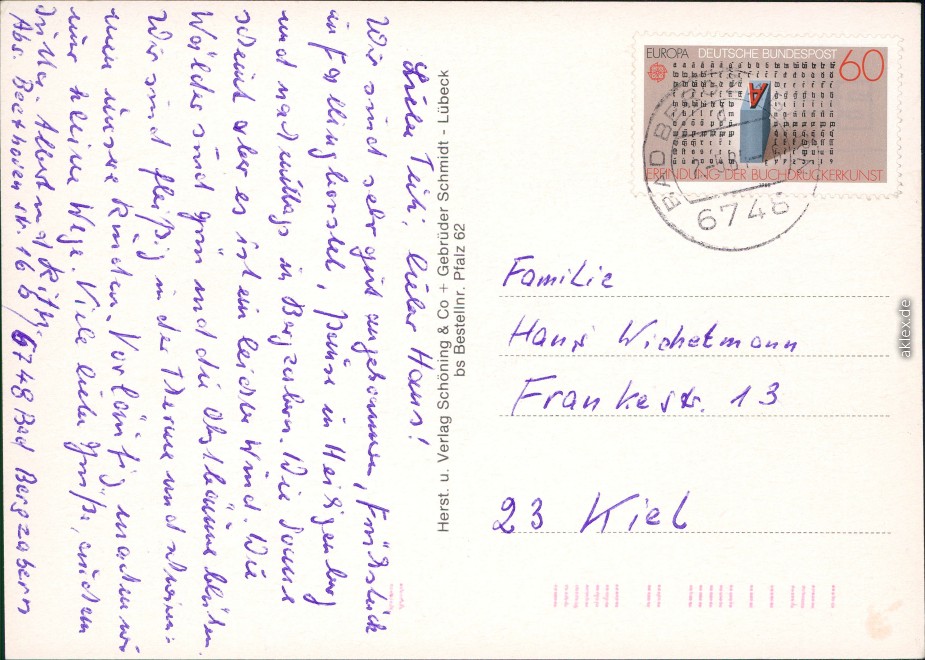 Liebe Tuti, lieber Hans!
Wir sind sehr gut angekommen, Frühstück
in Esslingborstel, Pause in Heiligenberg
und nachmittags in Bergzabern. Die Sonne
scheint aber es ist ein leichter Wind. Die
Wälder sind grün und die Obstbäume blühen.
Wir sind fleißig in der Therme und schwim-
men unsere Runden. Vorläufig machen wir
nur kleine Wege. Viele liebe Grüße, auch an
Albert und
Abs. Beethovenstr. 16 b / 6748 Bad Bergzabern
Herst. u. Verlag Schöning & Co + Gebrüder Schmidt - Lübeck
bs Bestellnr. Pfalz 62
EUROPA DEUTSCHE BUNDESPOST
60
A
ERFINDUNG DER BUCHDRUCKERKUNST
BAD BE
6748
Familie
Hans Wichelmann
Frankestr. 13
23 Kiel
aklex.de